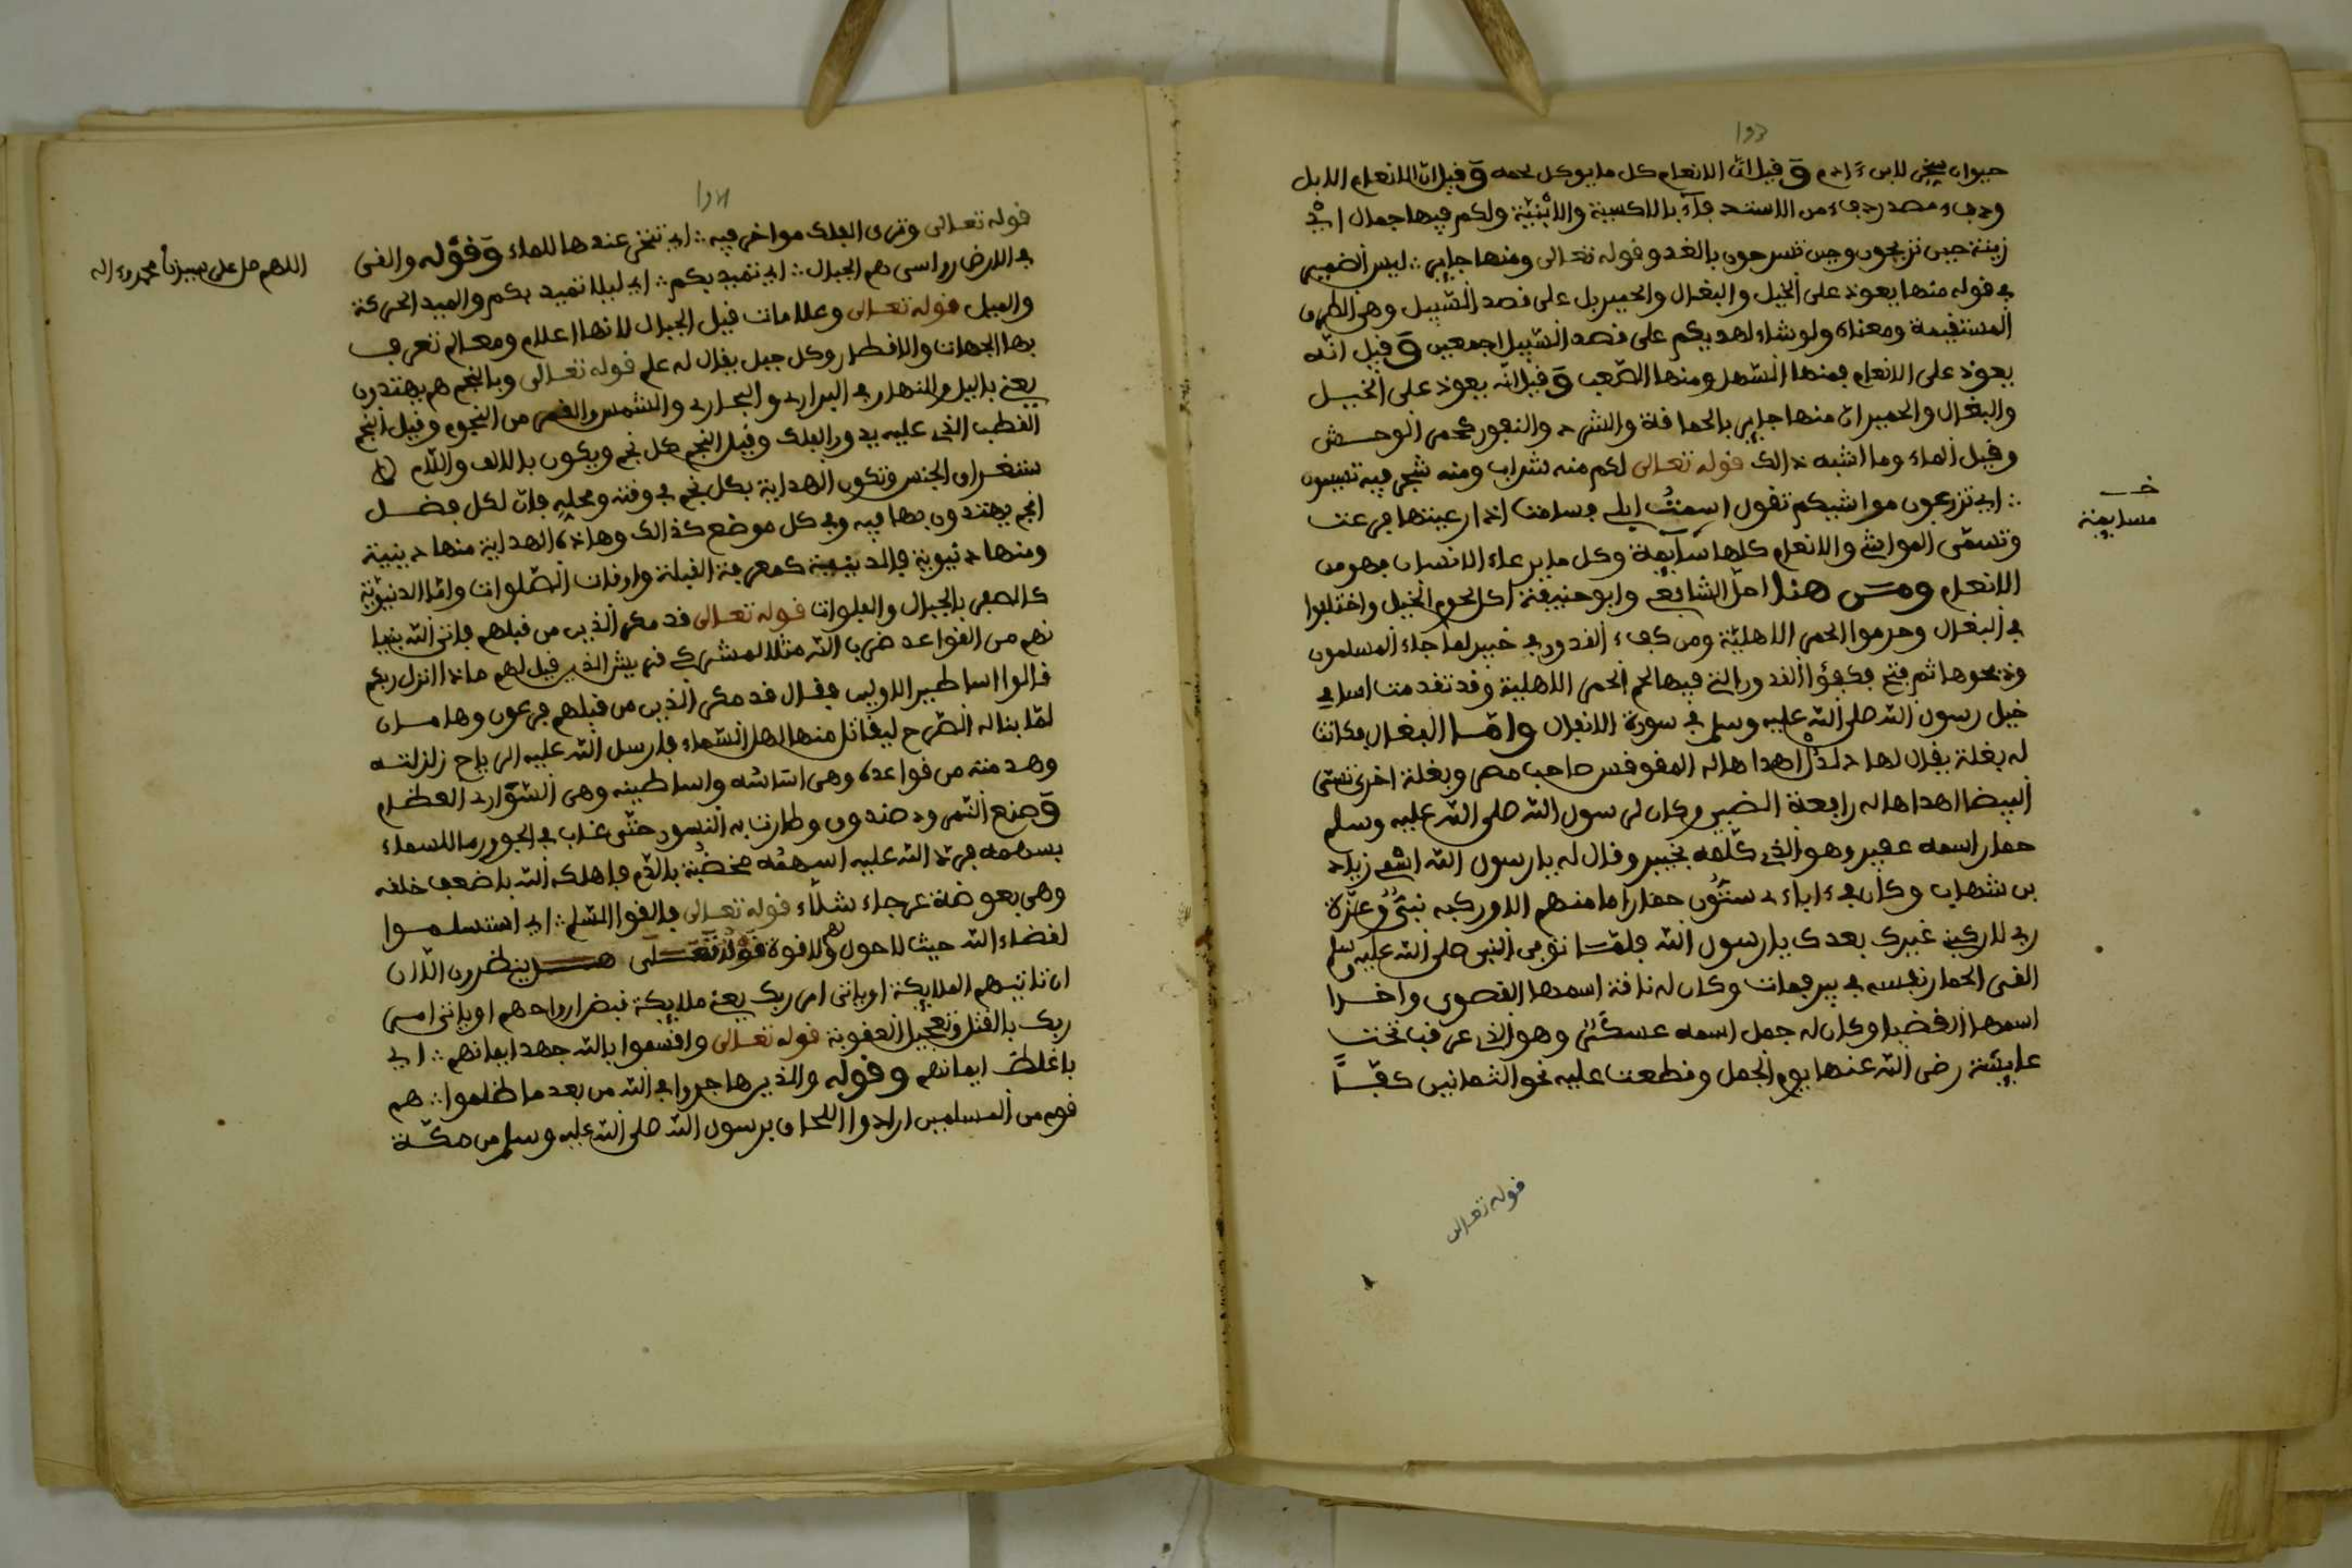 حيوان سخر لابن ءادم وقيل ان الانعام كل ما يوكل لحمه وقيل ان الانعام الابل
ودفء مصدر دفء من الاستدفاء بالاكسية والابنية ولكم فيها جمال اي
زينة حين تريحون وحين تسرحون بالغدو قوله تعالى ومنها جاير ∴ ليس الضمير
في قوله منها يعود على الخيل والبغال والحمير بل على قصد السبيل وهي الطرق
المستقيمة ومعناه ولو شاء لهديكم على قصد السبيل اجمعين وقيل انه
يعود على الانعام فمنها السهل ومنها الصعب وقيل انه يعود على الخيل
والبغال والحمير ان منها جاير بالحماقة والشرد والنفور كحمر الوحش
وقيل الماء وما اشبه ذالك قوله تعالى لكم منه شراب ومنه شجر فيه تسيمون
∴ اي ترعون مواشيكم تقول اسمت ابلي فسامت اذا رعيتها فرعت
وتسمى المواشي والانعام كلها سآيمة وكل ما يرعاه الانسان فهو من
الانعام ومن هنا احل الشافعي وابو حنيفة اكل لحوم الخيل واختلفوا
في البغال وحرموا الحمر الاهلية ومن كفء القدور في خيبر لما جاء المسلمون
وذبحوها ثم فتح فكفؤا القدور التي فيها لحم الحمر الاهلية وقد تقدمت اسامي
خيل رسول الله صلى الله عليه وسلم في سورة الانفال واما البغال فكانت
له بغلة يقال لها دلدل اهداها له المقوقس صاحب مصر وبغلة اخرى تسمى
البيضا اهداها له رابعة الضبي وكان لرسول الله صلى الله عليه وسلم
حمار اسمه عفير وهو الذي كلمه بخيبر وقال له يا رسول الله اسمي زياد
بن شهاب وكان في ءاباءي ستون حمارا ما منهم الا وركبه نبي وعزة
ربي لا ركبني غيرك بعدك يا رسول الله فلما توفي النبي صلى الله عليه وسلم
القى الحمار نفسه في بير فمات وكان له ناقة اسمها القصوى واخرا
اسمها العضبا وكان له جمل اسمه عسكر وهو الذي عرقب تحت
عايشة رضي الله عنها يوم الجمل وقطعت عليه نحو الثمانين كفا
قوله تعالى
خــ
مسايمة
قوله تعالى وترى الفلك مواخر فيه ∴ اي تمخر عندها للماء وقوله والقى
في الارض رواسي هم الجبال ∴ اي تميد بكم ∴ اي ليلا تميد بكم والميد الحركة
والميل قوله تعالى وعلامات قيل الجبال لانها اعلام ومعالم تعرف
بها الجهات والاقطار وكل جبل يقال له علم قوله تعالى وبالنجم هم يهتدون
يعني بالليل والنهار في البراري والبحاري والشمس والقمر من النجوم وقيل النجم
القطب الذي عليه يدور الفلك وقيل النجم كل نجم ويكون بالالف واللام لا
ستغراق الجنس وتكون الهداية بكل نجم في وقته ومحله فان لكل فصل
انجم يهتدون بها فيه وفي كل موضع كذالك وهاذه الهداية منها دينية
ومنها دنيوية فالدينية كمعرفة القبلة واوقات الصلوات واما الدنيوية
كالسفر بالجبال والفلوات قوله تعالى قد مكر الذين من قبلهم فاتى الله بنيا
نهم من القواعد ضرب الله مثلا لمشركي قريش الذين قيل لهم ماذا انزل ربكم
قالوا اساطير الاولين فقال قد مكر الذين من قبلهم فرعون وهامان
لما بنا له الصرح ليقاتل منها اهل السماء فارسل الله عليه الرياح زلزلته
وهدمته من قواعده وهي اساسه واساطينه وهي السواري العظام
وصنع النمرود صندوق وطارت به النسور حتى غاب في الجو ورما للسماء
بسهمه فرد الله عليه اسهمه مخضبة بالدم فاهلكه الله باضعف خلقه
وهي بعوضة عرجاء شلاء قوله تعالى فالقوا السلم ∴ اي استسلموا
لقضاء الله حيث لا حول لهم ولا قوة قوله تعالى هل ينظرون الا ان
ان تاتيهم الملايكة او ياتي امر ربك يعني ملايكة تقبض ارواحهم او ياتي امر
ربك بالقتل وتعجيل العقوبة قوله تعالى واقسموا بالله جهد ايمانهم ∴ اي
باغلظ ايمانهم وقوله والذين هاجروا في الله من بعد ما ظلموا ∴ هم
قوم من المسلمين ارادوا اللحاق برسول الله صلى الله عليه وسلم من مكة
اللهم صل على سيدنا محمد وءاله